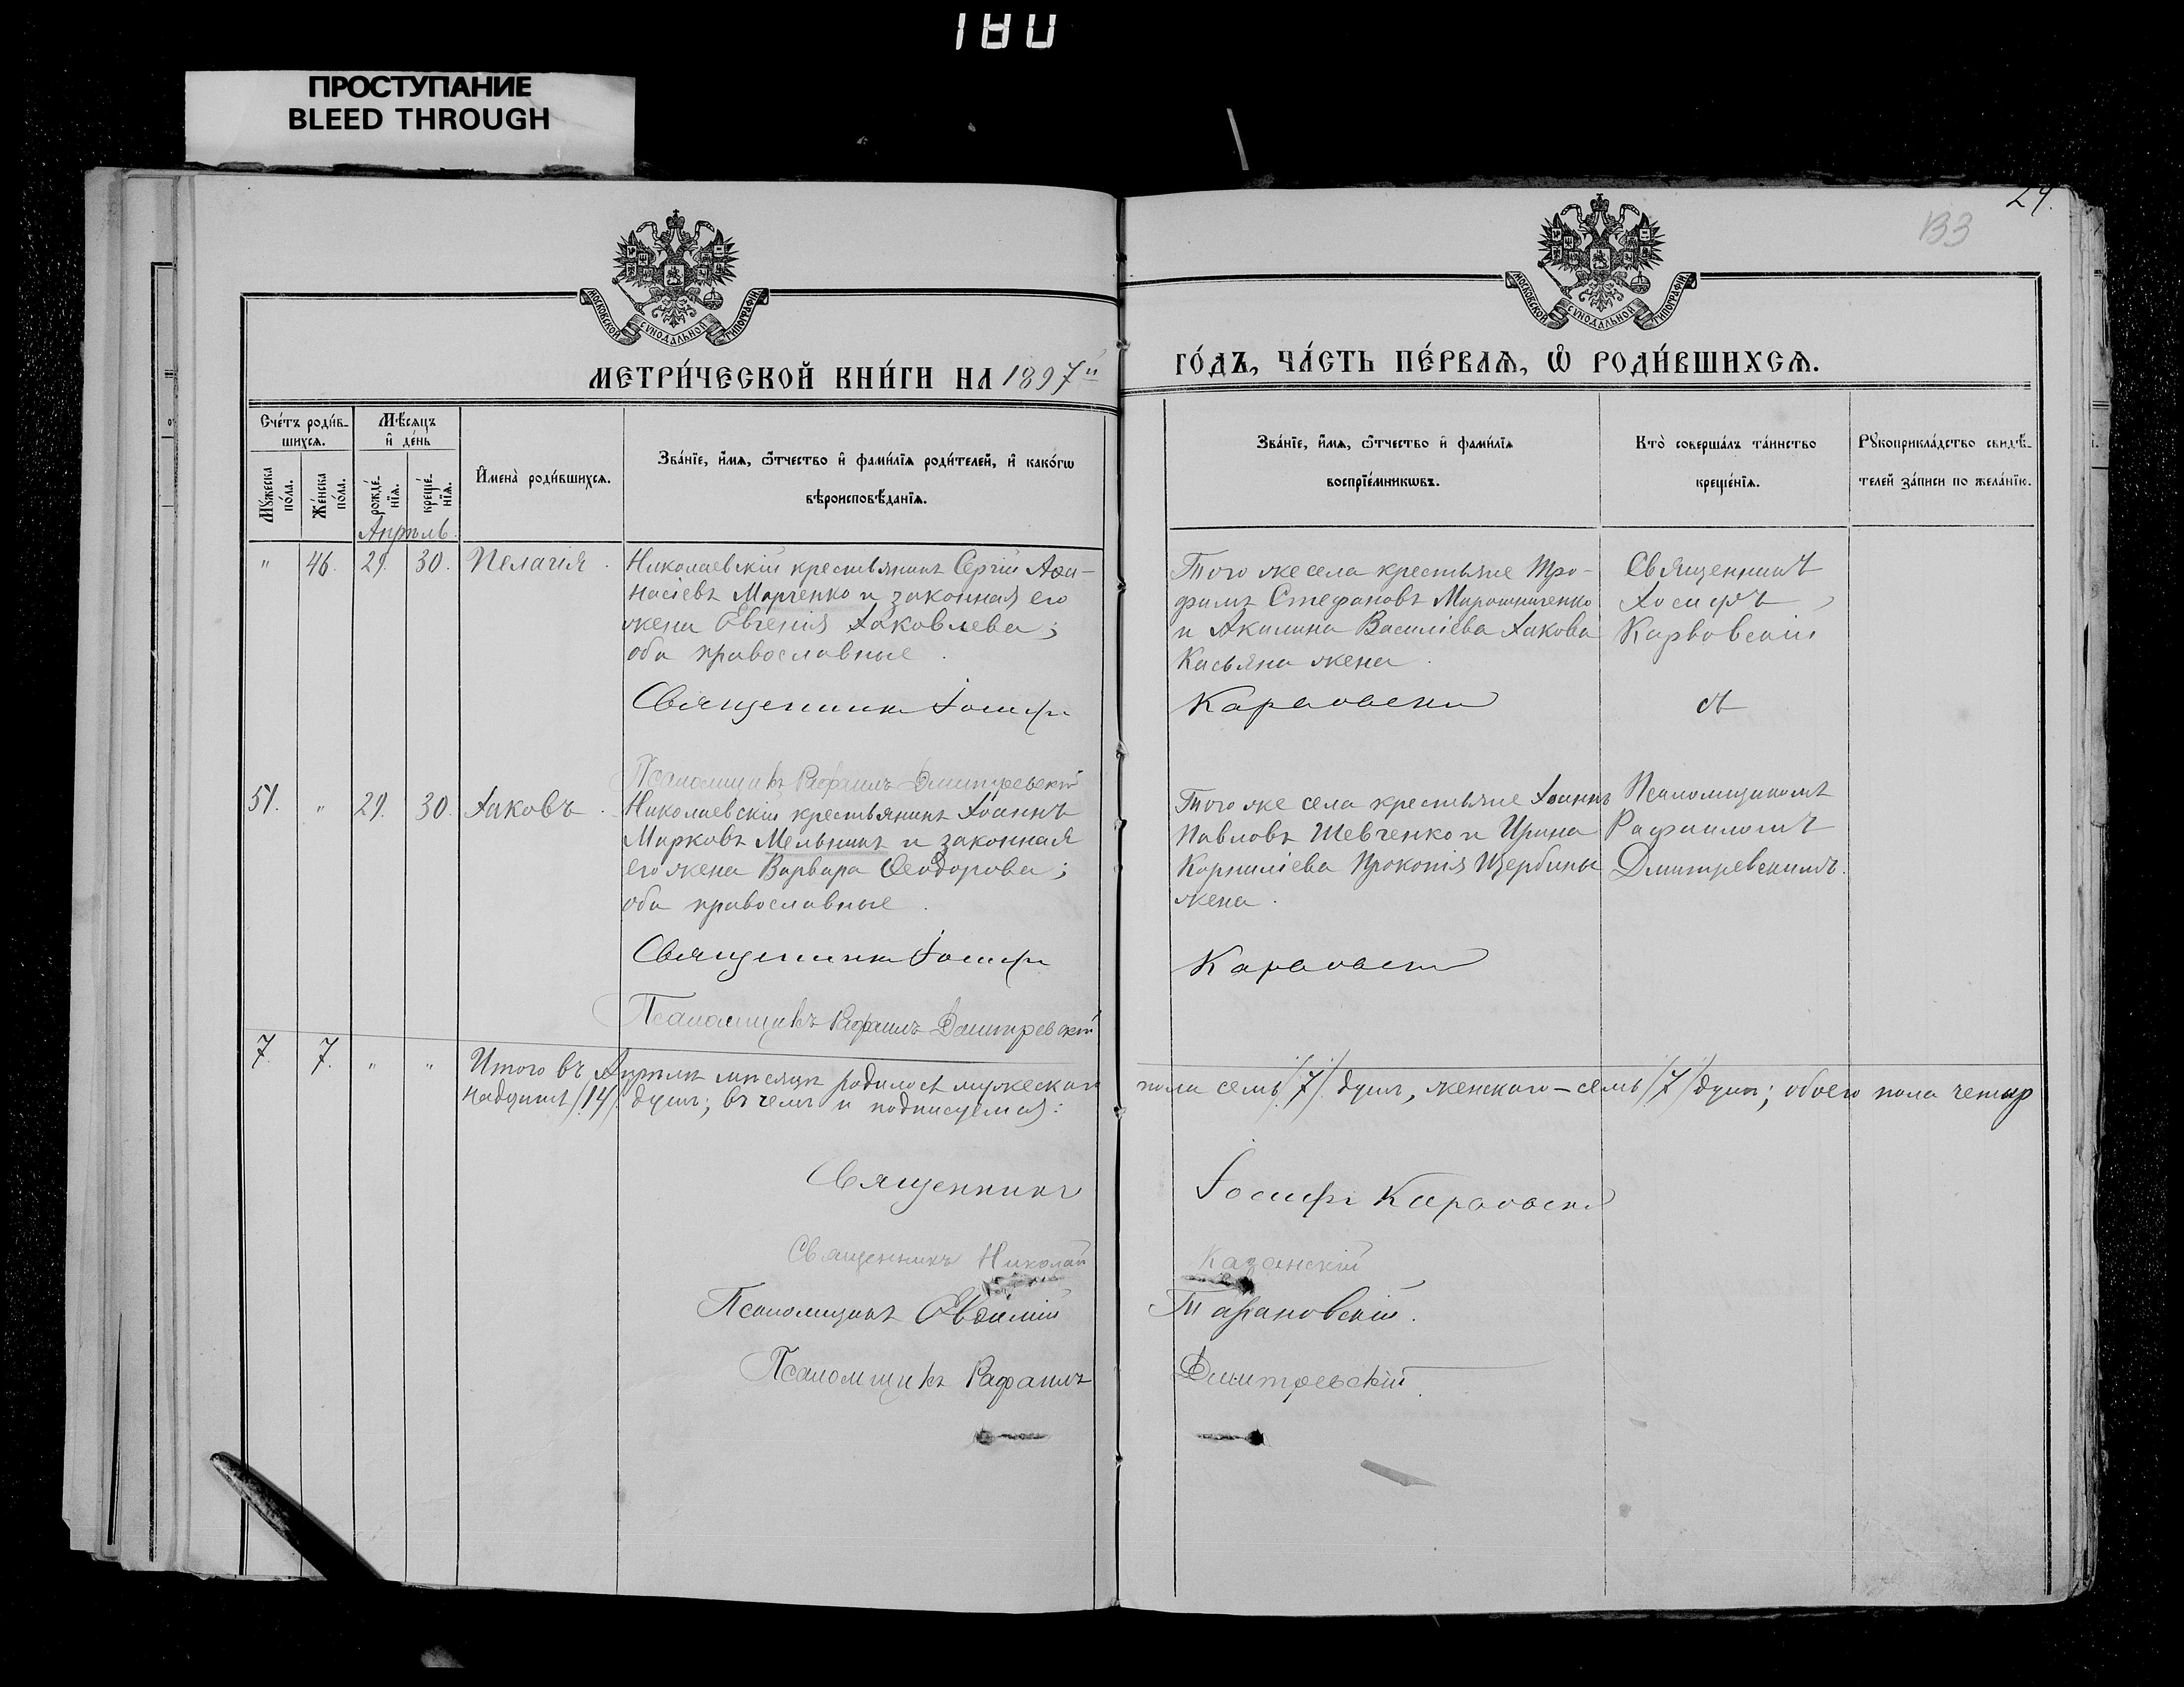 180
ПРОСТУПАНИЕ
BLEED THROUGH
24.
133
МОСКОВСКОЙ СѴНОДАЛЬНОЙ ТИПОГРАФІИ
МОСКОВСКОЙ СѴНОДАЛЬНОЙ ТИПОГРАФІИ
МЕТРИ́ЧЕСКОЙ КНИ́ГИ НА 1897й
ГО́ДЪ, ЧА́СТЬ ПЕ́РВАЯ, Ѡ҆ РОДИ́ВШИХСЯ.
Сче́тъ роди́в-
шихся.
Мꙋжеска
по́ла.
Же́нска
по́ла.
Мѣ́сяцъ
и҆ де́нь
рожде́-
нїя.
креще́-
нїя.
И҆мена̀ роди́вшихся.
Зва́нїе, и҆́мя, ѻ҆́тчество и҆ фами́лїя роди́телей, и҆ како́гѡ
вѣроисповѣ́данїя.
Зва́нїе, и҆́мя, ѻ҆́тчество и҆ фами́лїя
воспрїе́мникѡвъ.
Кто̀ соверша́лъ та́инство
креще́нїя.
Рꙋкоприкла́дство свидѣ́-
телей за́писи по жела́нїю.
Апрѣль
" 46. 29. 30. Пелагія.
Николаевскій крестьянинъ Сергій Аѳа-
насіевъ Марченко и законная его
жена Евгенія Іаковлева;
оба православные.
Того же села крестьяне Тро-
фимъ Стефановъ Мирошниченко
и Акилина Василіева Іакова
Касьяна жена.
Священникъ
Іосифъ
Карвовскій
Священникъ Іосифъ
Карвовскій
Псаломщикъ Рафаилъ Дмитревскій
51. " 29. 30. Іаковъ.
Николаевскій крестьянинъ Іоаннъ
Марковъ Мельникъ и законная
его жена Варвара Ѳеодорова;
оба православные.
Того же села крестьяне Іоаннъ
Павловъ Шевченко и Ирина
Корниліева Прокопія Щербины
жена.
Псаломщикомъ
Рафаиломъ
Дмитревскимъ.
Священникъ Іосифъ
Карвовскій
Псаломщикъ Рафаилъ Дмитревскій
7. 7. " " Итого въ Апрѣлѣ мѣсяцѣ родилось мужескаго пола семь /7/ душъ, женскаго – семь /7/ душъ; обоего пола четыр
надцать /14/ душъ; въ чемъ и подписуемся:
Священникъ Іосифъ Карвовскій
Священникъ Николай Казанскій
Псаломщикъ Евѳимій Тарановскій.
Псаломщикъ Рафаилъ Дмитревскій.